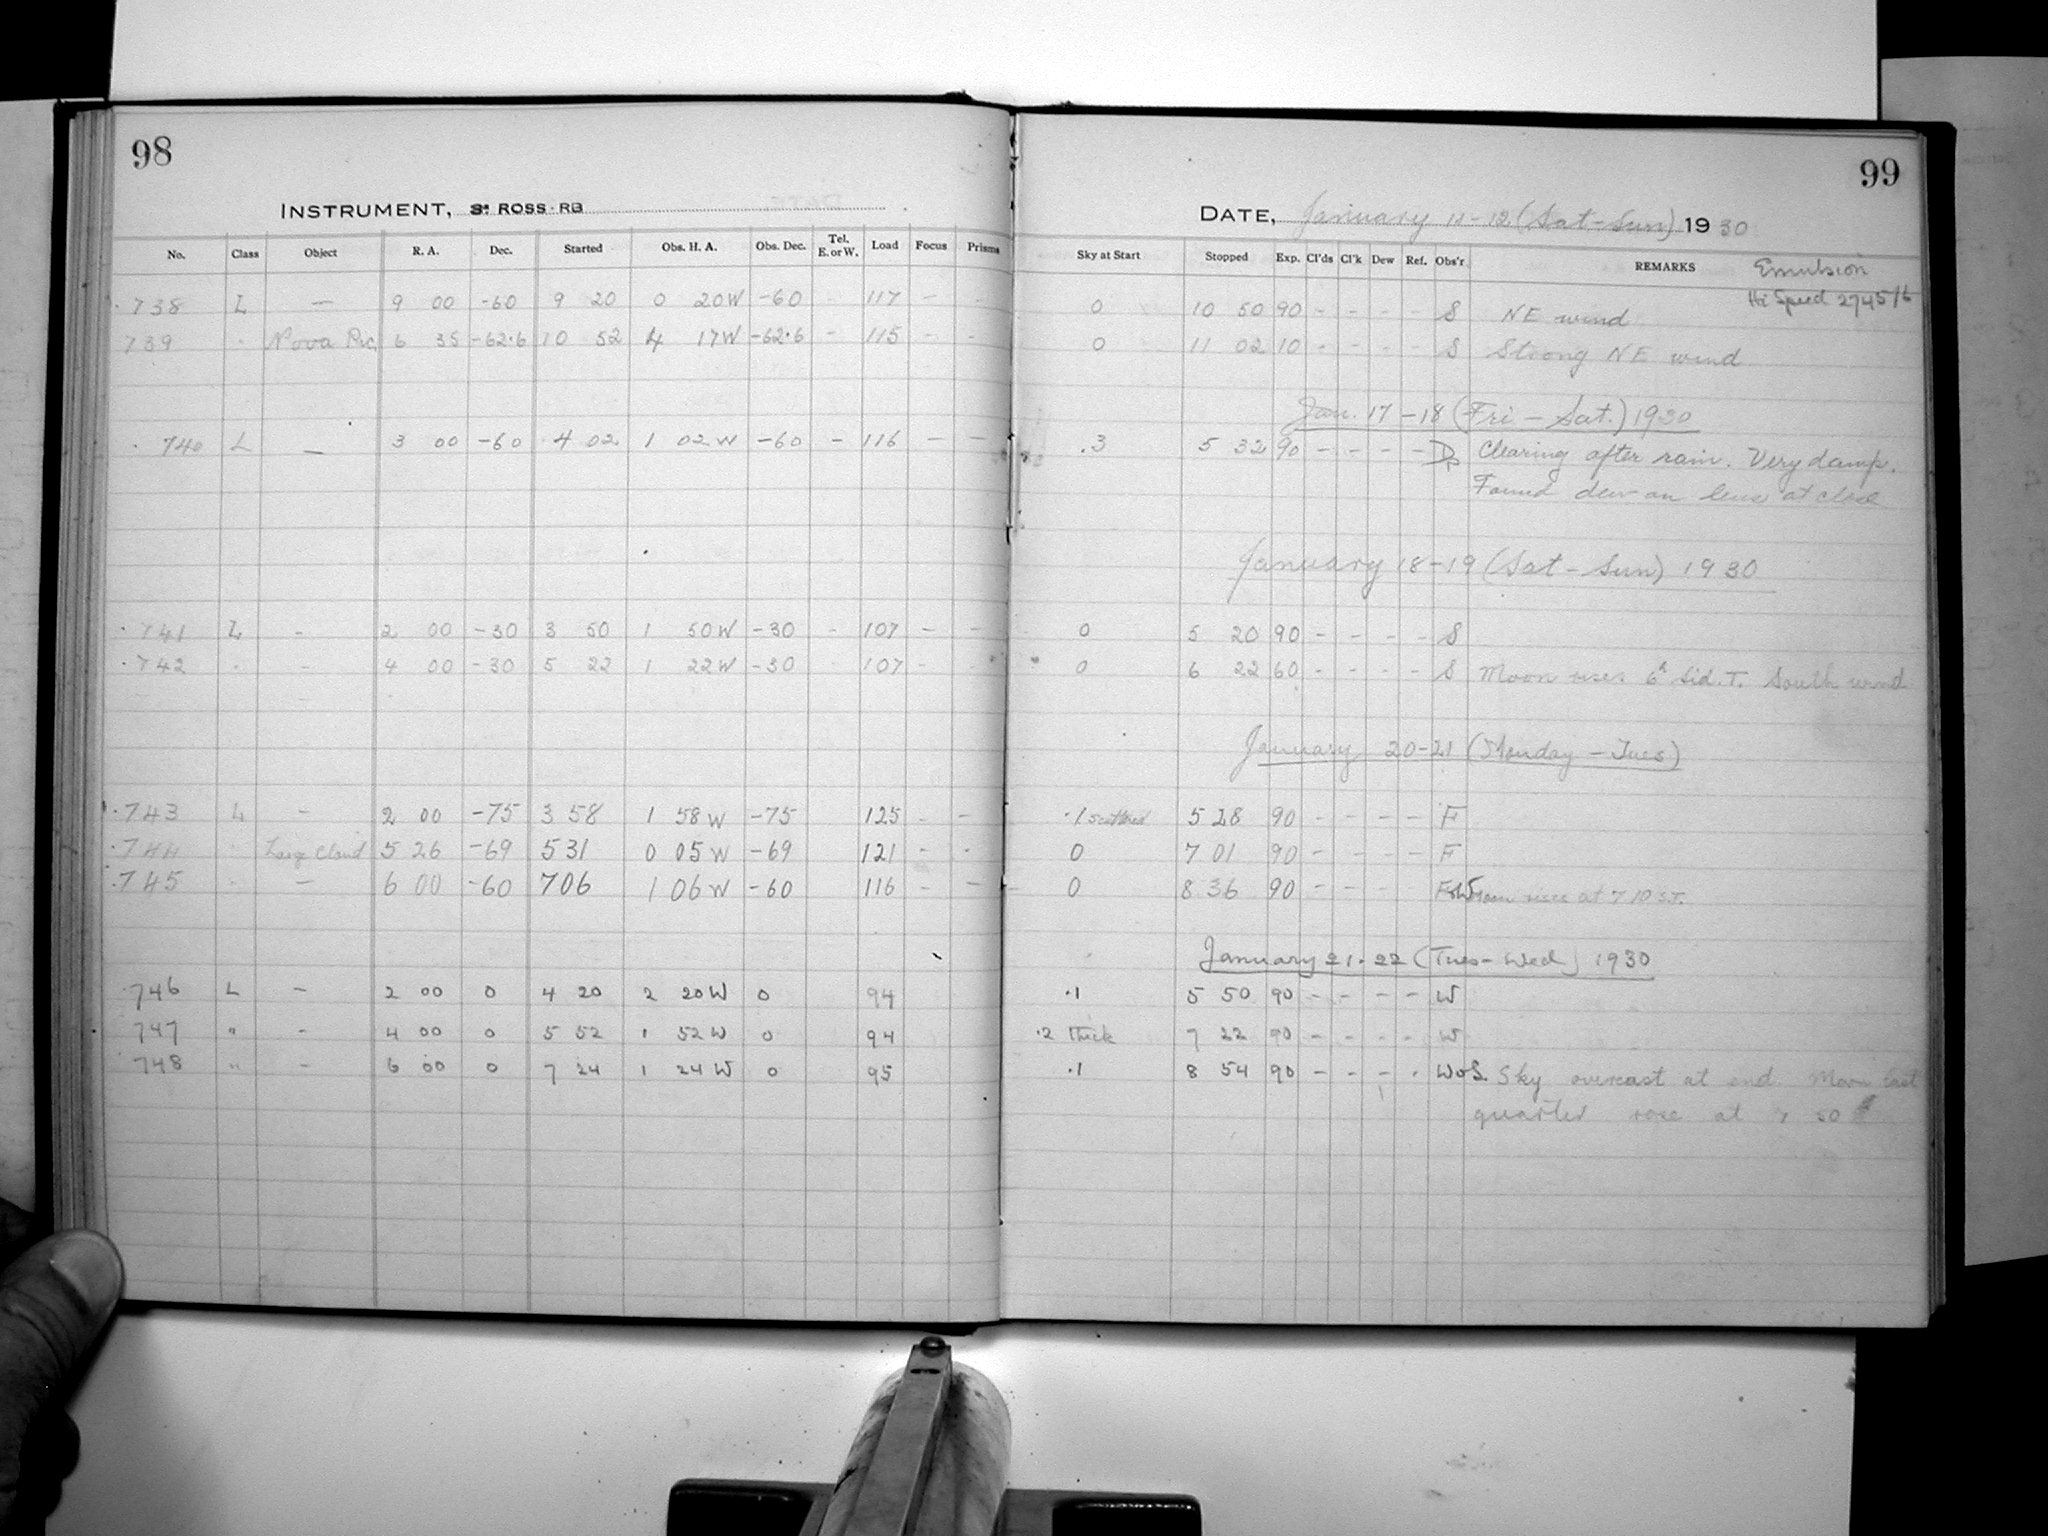 98
INSTRUMENT, 3" ROSS-RB
No. Class Object R. A. Dec. Started Obs. H. A. Obs. Dec. Tel. E. or W. Load Focus Prisms
738 L — 9 00 -60 9 20 0 20W -60 117 - -
739 " Nova Pic 6 35 -62.6 10 52 4 17W -62.6 - 115 - -
740 L — 3 00 -60 4 02 1 02W -60 - 116 - -
741 L - 2 00 -30 3 50 1 50W -30 - 107 - -
742 " - 4 00 -30 5 22 1 22W -30 107 - -
743 L - 2 00 -75 3 58 1 58W -75 125 - -
744 " Large Cloud 5 26 -69 5 31 0 05W -69 121 - -
745 " - 6 00 -60 7 06 1 06W -60 116 - -
746 L - 2 00 0 4 20 2 20W 0 94
747 " - 4 00 0 5 52 1 52W 0 94
748 " - 6 00 0 7 24 1 24W 0 95
99
DATE, January 11-12 (Sat-Sun) 1930
Sky at Start Stopped Exp. Cl'ds Cl'k Dew Ref. Obs'r REMARKS Emulsion
Hi Speed 27457b
0 10 50 90 - - - - S NE wind
0 11 02 10 - - - - S Strong NE wind
Jan. 17-18 (Fri-Sat.) 1930
.3 5 32 90 - - - - Clearing after rain. Very damp.
Found dew on lens at close
January 18-19 (Sat-Sun) 1930
0 5 20 90 - - - - S
0 6 22 60 - - - - S Moon rises 6h Sid. T. South wind
January 20-21 (Monday-Tues)
.1 scattered 5 28 90 - - - - F
0 7 01 90 - - - - F
0 8 36 90 - - - Moon rises at 7 10 ST.
January 21-22 (Tues-Wed) 1930
.1 5 50 90 - - - - W
.2 thick 7 22 90 - - - - W
.1 8 54 90 - - - - W&S. Sky overcast at end. Moon last
quarter rose at 7 50